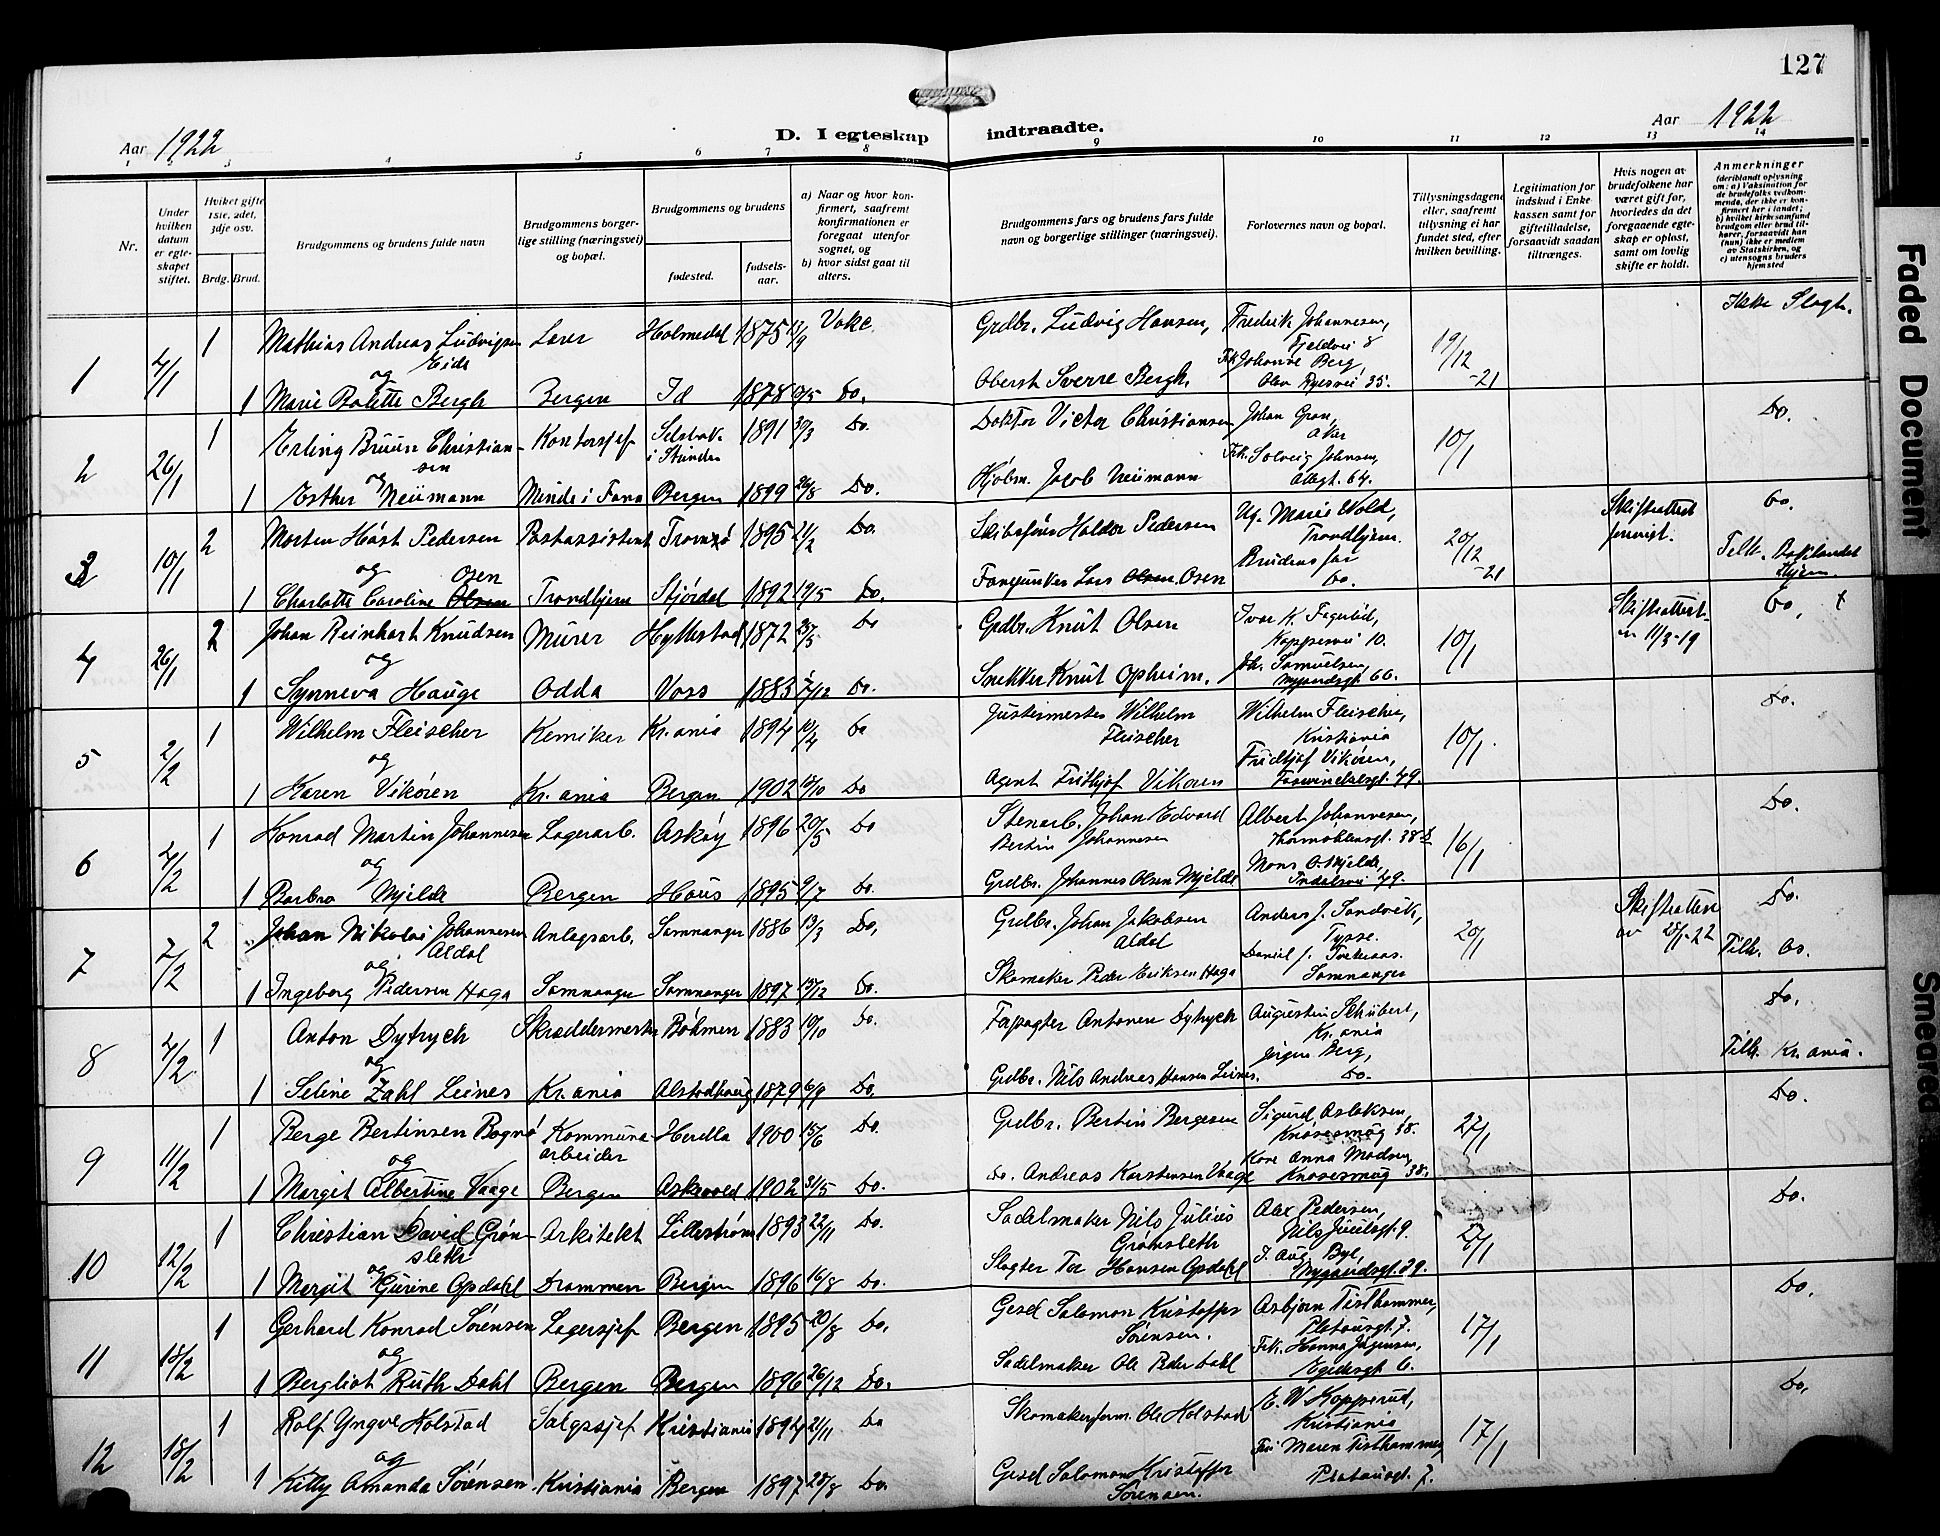 127
Aar 1922
D. I egteskap indtraadte.
Aar 1922
1 3 4 5 6 7 8 9 10 11 12 13 14
Nr.
Under hvilken datum er egte-skapet stiftet.
Hvilket gifte 1ste, 2det, 3dje osv.
Brdg. Brud.
Brudgommens og brudens fulde navn
Brudgommens borger-lige stilling (næringsvei) og bopæl.
Brudgommens og brudens
fødested. fødsels-aar.
a) Naar og hvor kon-firmert, saafremt konfirmationen er foregaat utenfor sognet, og
b) hvor sidst gaat til alters.
Brudgommens fars og brudens fars fulde navn og borgerlige stillinger (næringsvei).
Forlovernes navn og bopæl.
Tillysningsdagene eller, saafremt tillysning ei har fundet sted, efter hvilken bevilling.
Legitimation for indskud i Enke-kassen samt for giftetilladelse, forsaavidt saadan tiltrænges.
Hvis nogen av brudefolkene har været gift for, hvorledes da det foregaaende egte-skap er opløst, samt om lovlig skifte er holdt.
Anmerkninger (deriblandt oplysning om: a) Vaksination for de brudefolks vedkom-mende, der ikke er kon-firmert her i landet; b) hvilket kirkesamfund brudgom eller brud til-hører, forsaavidt han (hun) ikke er medlem av Statskirken, og c) utensogns bruders hjemsted
1 4/1 1 Mathias Andreas Ludvigsen Eide Lærer Holmedal 1875 13/9 Vokc. Grdbr. Ludvig Hansen, Fredrik Johannesen, Fjeldvei 8 19/12-21 Ikke Slegt.
og
1 Marie Bolette Bergh Bergen Id 1878 9/5 Do. Oberst Sverre Bergh. Frk Johanne Berg, Olav Ryesvei 35.
2 26/1 1 Erling Bruun Christiansen Kontorsjef Selsbak i Strinden 1891 3/3 Do. Doktor Victor Christiansen Johan Gran, Aker 10/1 Do.
og
1 Esther Neumann Minde i Fana Bergen 1899 26/8 Do. Hjólm. Jacob Neumann Frk. Solveig Johnsen, Allegt. 64.
3 10/1 2 Morten Høst Pedersen Postassistent Tromsø 1895 21/2 Do. Skibsfører Haldor Pedersen Ug. Marie Wold, Trondhjem. 20/12-21 Skifteattest Do.
og
1 Charlotte Caroline Olsen Osen Trondhjem Stjørdal 1892 19/5 Do. Lars Olsen Osen Brudens far Do. Tilh.
4 26/1 2 Johan Reinhart Knudsen Murer Hyllestad 1872 Do Grdbr. Knut Olsen Ivar K. Fagerlid, Koppervei 10. 10/1 Skifteattest 11/3-19 Do.
og
1 Synneva Hauge Odda Voss 1883 Do. Snekker Knut Opheim. Joh. Samuelsen, Nygaardsgt 66.
5 2/2 1 Wilhelm Fleischer Kemiker Kr.ania 1894 10/4 Do Justermester Wilhelm Fleischer Wilhelm Fleischer, Kristiania 10/1 Do.
og
1 Karen Vikøren Kr.ania Bergen 1902 10/10 Do Agent Fridtjof Vikøren Fridtjof Vikøren, 49.
6 4/2 1 Konrad Martin Johannesen Lagerarb. Askøy 1896 20/5 Do Stenarb. Johan Edvard Bertin Johannesen Albert Johannesen, Thormøhlensgt. 38 16/1 Do.
og
1 Barbra Mjelde Bergen Haus 1895 9/7 Do. Grdbr. Johannes Olsen Mjelde Mons O. Mjelde, Indalsvei 49.
7 7/2 2 Johan Nikolai Johannesen Aldal Anlægsarb. Samnanger 1886 13/3 Do. Grdbr. Johan Jakobsen Aldal Anders J. Sandvik, Tysse. 20/1 Skifteattest av -22 Do.
og
1 Ingeborg Pedersen Haga Samnanger Samnanger 1897 13/12 Do. Skomaker Peder Eriksen Haga Daniel J. Samnanger Tilh. Os.
8 4/2 1 Anton Dytrych Skræddermester Böhmen 1883 19/10 Do. Antonin Dytrych Augustin Schubert, Kr.ania Do.
og
1 Seline Zahl Leines Kr.ania Alstadhaug 1879 6/9 Do. Grdbr. Nils Andreas Hansen Leines. Jørgen Berg, Do. Tilh. Kr.ania.
9 11/2 1 Berge Bertinsen Bognø Kommunearbeider Herdla 1900 15/6 Do. Grdbr. Bertin Bergesen Sigurd Aslaksen, Knøsesmug 38. 27/1 Do.
og
1 Margit Albertine Vaage Bergen Askvoll 1902 3/5 Do. Do. Andreas Karstensen Vaage Kone Anna Madsen, Knøsesmug 38.
10 12/2 1 Christian David Grønsleth Arkitekt Lillestrøm 1893 22/11 Do. Sadelmaker Nils Julius Grønsleth Alex Pedersen, Nils Juelsgt. 9. 27/1 Do.
og
1 Margit Gurine Opdahl Drammen Bergen 1896 16/8 Do. Slagter Tor Hansen Opdahl J. Aug. Bye, Nygaardsgt. 29.
11 18/2 1 Gerhard Konrad Sørensen Lagersjef Bergen 1895 20/8 Do. Gesel Salomon Kristoffer Sørensen. Asbjørn Tisthammer, Platousgt. 7. 17/1 Do.
og
1 Bergliot Ruth Dahl Bergen Bergen 1896 26/12 Do. Sadelmaker Ole Peder Dahl Frk. Hanna Jørgensen, Egedesgt 6.
12 18/2 1 Rolf Yngve Holstad Salgssjef Kristiania 1894 21/11 Do Skomakerform. Ole Holstad E. W. Kopperud, Kristiania 17/1 Do.
og
1 Killy Amanda Sørensen. Kristiania Bergen 1897 28/8 Do. Gesel Salomon Kristoffer Sørensen. Fru Maren Tisthammer, Platousgt. 7.
Faded Document
Smeared